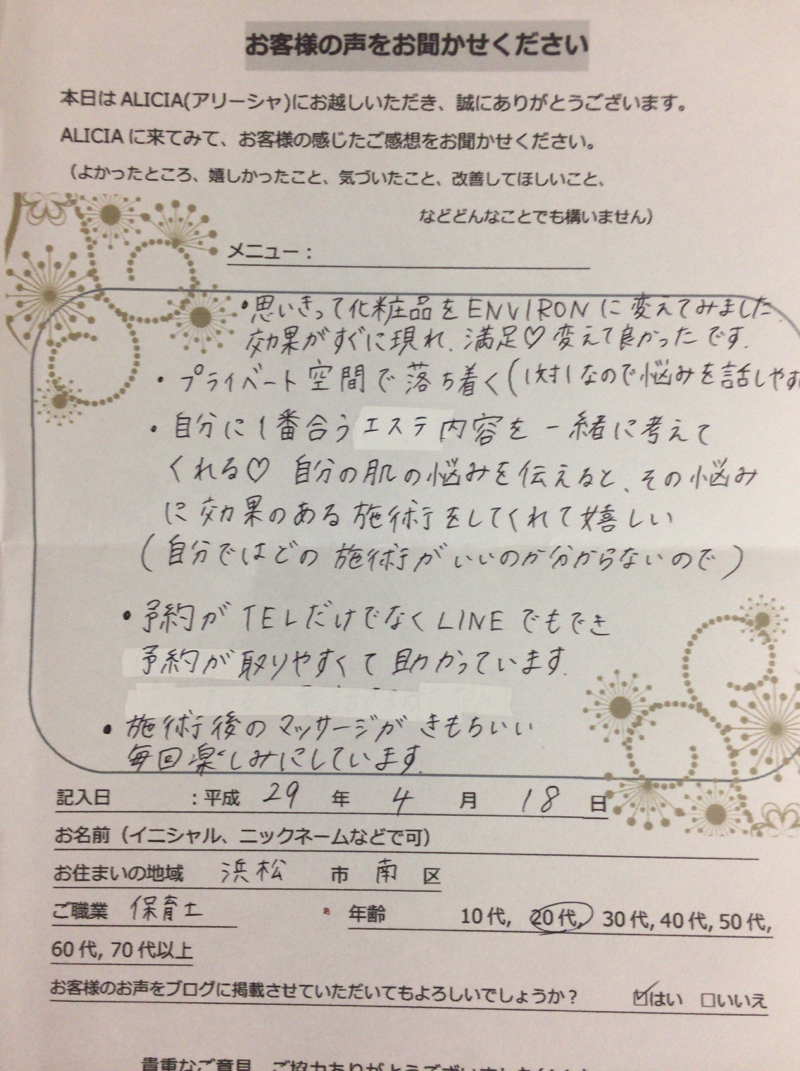 お客様の声をお聞かせください
本日はALICIA(アリーシャ)にお越しいただき、誠にありがとうございます。
ALICIAに来てみて、お客様の感じたご感想をお聞かせください。
（よかったところ、嬉しかったこと、気づいたこと、改善してほしいこと、
などどんなことでも構いません）
メニュー：
・思いきって化粧品をENVIRONに変えてみました
効果がすぐに現れ、満足♡変えて良かったです。
・プライベート空間で落ち着く(1対1なので悩みを話しやす
・自分に1番合うエステ内容を一緒に考えて
くれる♡ 自分の肌の悩みを伝えると、その悩み
に効果のある施術をしてくれて嬉しい
(自分ではどの施術がいいのか分からないので)
・予約がTELだけでなくLINEでもでき
予約が取りやすくて助かっています。
・施術後のマッサージがきもちいい
毎回楽しみにしています。
記入日 ：平成 29 年 4 月 18 日
お名前（イニシャル、ニックネームなどで可）
お住まいの地域 浜松 市 南 区
ご職業 保育士 年齢 10代, 20代, 30代, 40代, 50代,
60代, 70代以上
お客様のお声をブログに掲載させていただいてもよろしいでしょうか？ ☑はい □いいえ
貴重なご意見、ご協力ありがとうございました